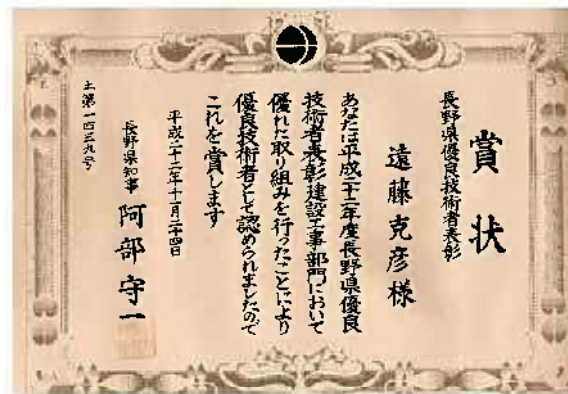 賞状
長野県優良技術者表彰
遠藤克彦様
あなたは平成二十二年度長野県優良
技術者表彰建設工事部門において
優れた取り組みを行ったことにより
優良技術者として認められましたので
これを賞します
平成二十二年十一月二十四日
長野県知事 阿部守一
土第一四三九号